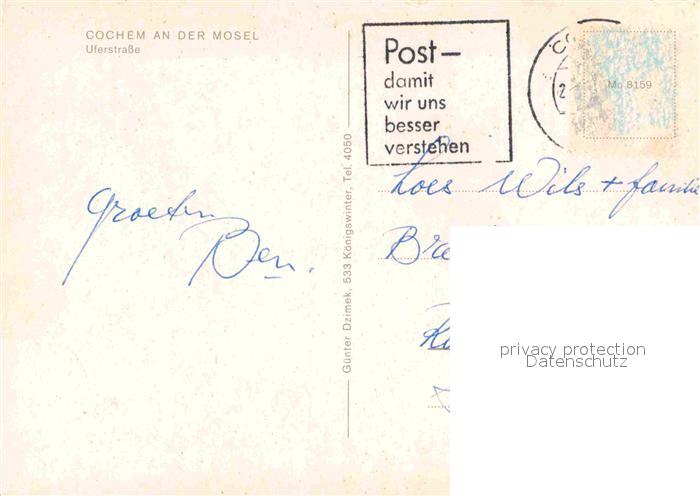 COCHEM AN DER MOSEL
Uferstraße
Post—
damit
wir uns
besser
verstehen
Mo 8159
Groeten
Ben.
Günter Dzimek, 533 Königswinter, Tel. 4050
Loes Wils + familie
Bre
privacy protection
Datenschutz